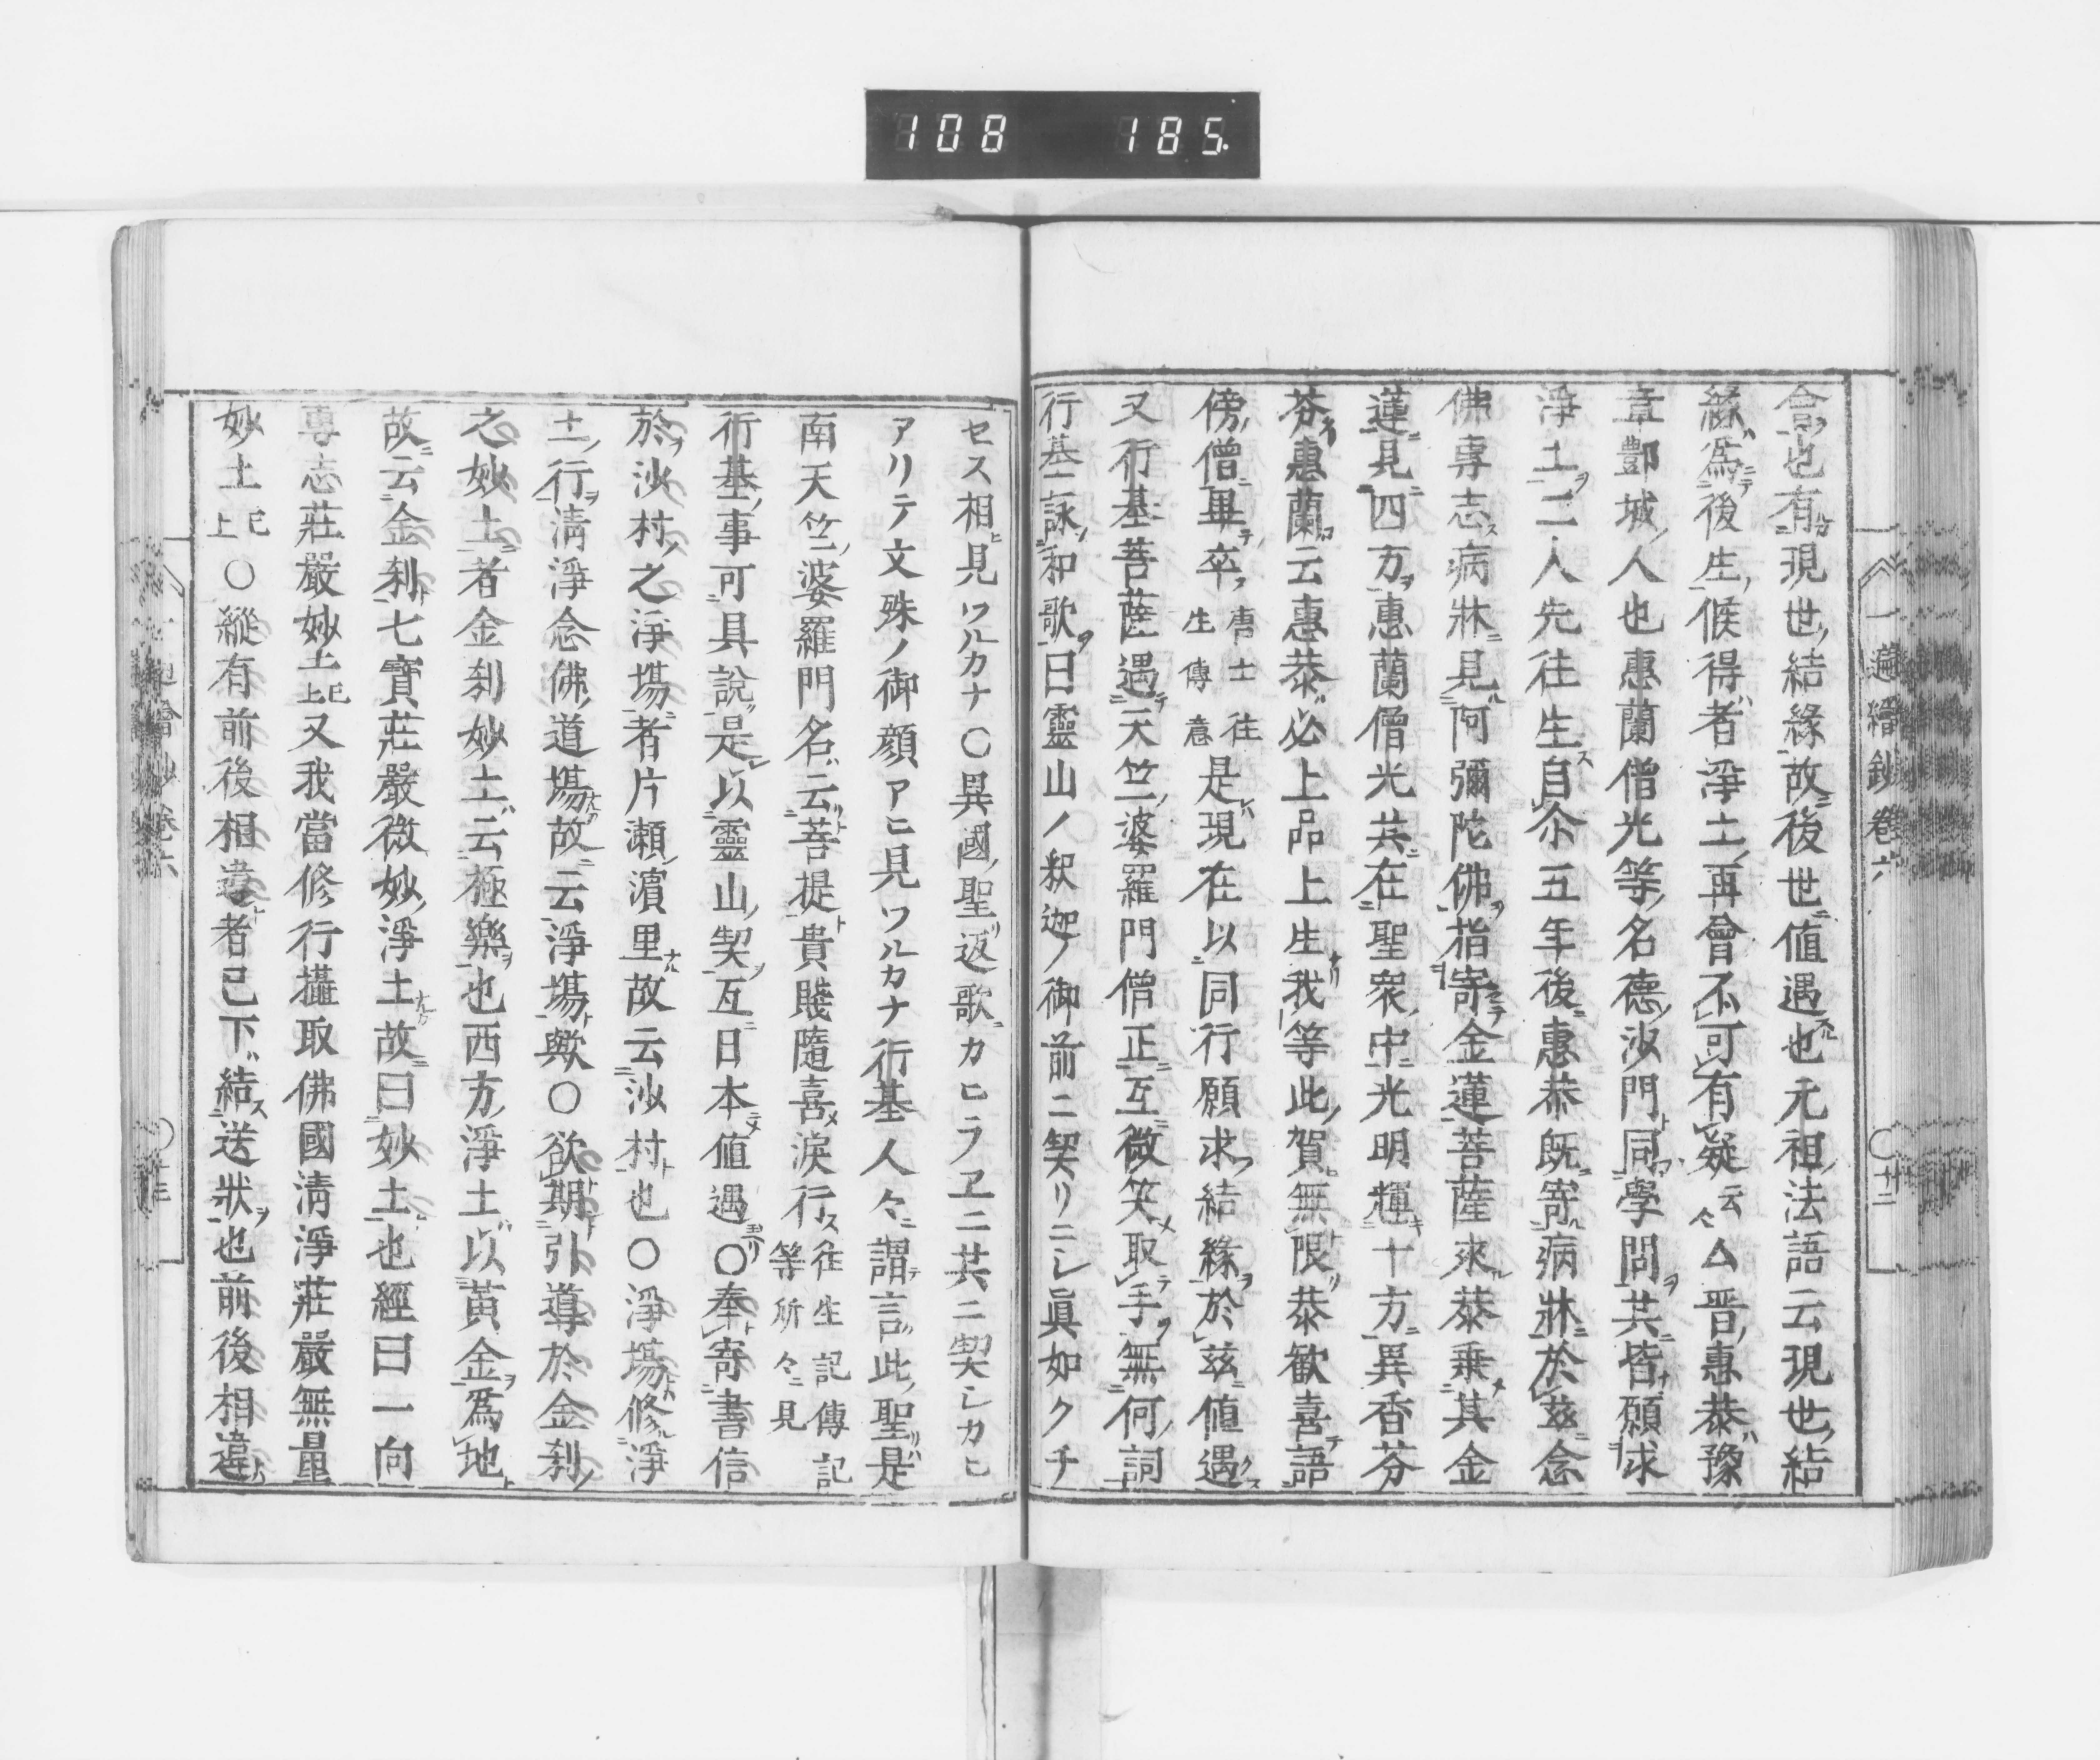 108 185
一遍繪鈔卷六
○十二
會也有現世結緣故後世値遇也元祖法語云現世結
緣爲後生候得者淨土再會不可有疑云々△晋惠恭豫
章酆城人也惠蘭僧光等名德沙門同學問共皆願求
淨土二人先往生自尒五年後惠恭既寄病牀於玆念
佛專志病牀見阿彌陀佛指寄金蓮菩薩來恭乗其金
蓮見四方惠蘭僧光共在聖衆中光明輝十方異香芬
芬惠蘭云惠恭必上品上生我等此賀無限恭歓喜語
傍僧畢卒唐土往生傳意是現在以同行願求結緣於玆値遇
又行基菩薩遇天竺婆羅門僧正互微笑取手無何詞
行基詠和歌曰靈山ノ釈迦ノ御前ニ契リニシ眞如クチ
セス相見ツルカナ○異國聖返歌カヒラヱニ共ニ契シカヒ
アリテ文殊ノ御顔アヒ見ツルカナ行基人々謂言此聖是
南天竺婆羅門名云菩提貴賤隨喜淚行往生記傳記等所々見
行基事可具說是以靈山契互日本値遇○奉寄書信
於沙村之淨場者片瀨濵里故云沙村也○淨場修淨
土行淸淨念佛道場故云淨場歟○欲期引導於金刹
之妙土者金刹妙土云極樂也西方淨土以黃金爲地
故云金刹七寳莊嚴微妙淨土故曰妙土也經曰一向
專志莊嚴妙土已上又我當修行攝取佛國淸淨莊嚴無量
妙土已上○縱有前後相違者已下結送狀也前後相違